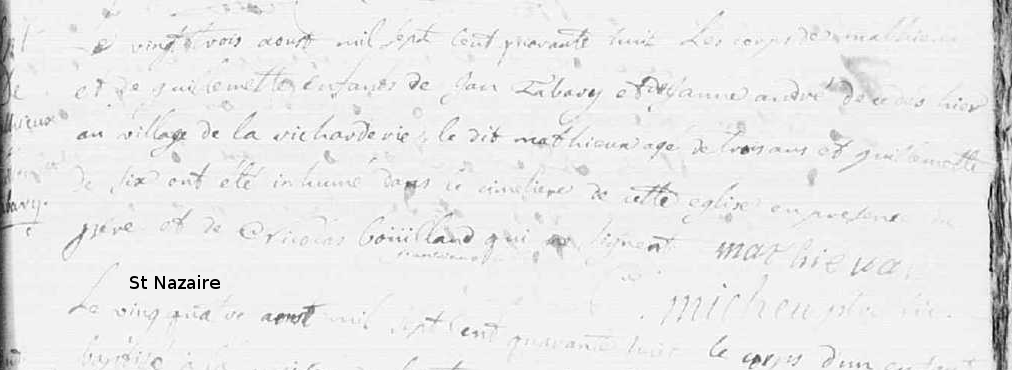 Le vingt trois aoust mil sept cent quarante huit Les corps de mathieu
et de guilemette enfants de Jan Tabary et de Janne andré decedés hier
au village de la richarderie le dit mathieu age de trois ans et guilemette
de six ont eté inhumé dans le cimetiere de cette eglise en presence du
père et de Nicolas boüilland qui ne signent
mathieu
St Nazaire
micheu
Le vingt quatre aoust mil sept cent quarante huit le corps d'un enfant
baptisé à la